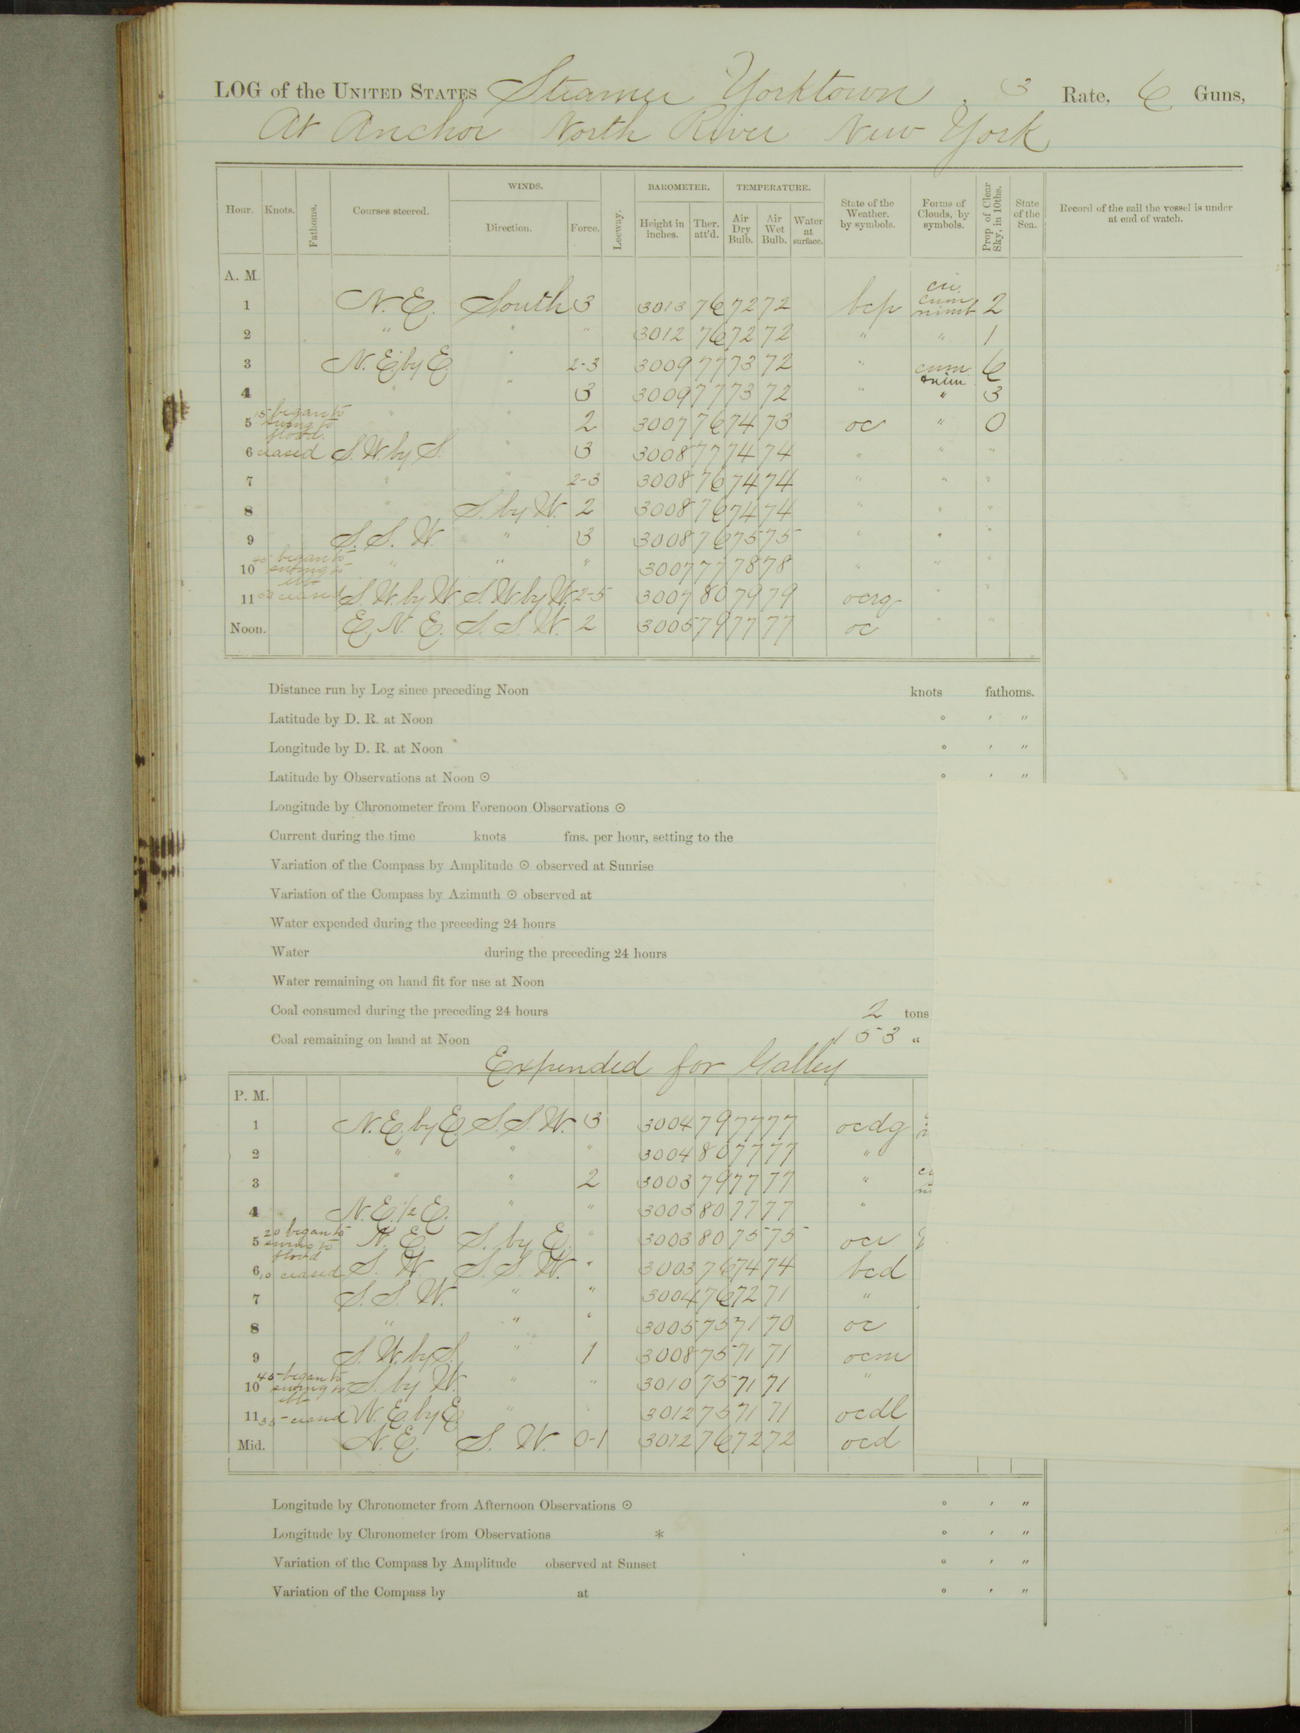 LOG of the UNITED STATES Steamer Yorktown, 3 Rate, 6 Guns,
At Anchor North River New York
Hour. Knots. Fathoms. Courses steered. WINDS. Direction. Force. Leeway. BAROMETER. Height in inches. Ther. att'd. TEMPERATURE. Air Dry Bulb. Air Wet Bulb. Water at surface. State of the Weather. by symbols. Forms of Clouds, by symbols. Prop of Clear Sky, in 10ths. State of the Sea. Record of the sail the vessel is under at end of watch.
A. M.
1 N.E. South 3 3013 76 72 72 bcp cu. cum nimb 2
2 " " " 3012 76 72 72 " " 1
3 N.E. by E " 2-3 3009 77 73 72 " cum nim 6
4 " " 3 3009 77 73 72 " " 3
5 15 began to swing to flood. " 2 3007 76 74 73 oc " 0
6 ceased S.W. by S. " 3 3008 77 74 74 " " "
7 " " 2-3 3008 76 74 74 " " "
8 " S. by W. 2 3008 76 74 74 " " "
9 S.S.W. " 3 3008 76 75 75 " " "
10 began to swing to ebb " " " 3007 77 78 78 " " "
11 ceased S.W. by W. S.W. by W. 2-5 3007 80 79 79 ocrq " "
Noon. E.N.E. S.S.W. 2 3005 79 77 77 oc " "
Distance run by Log since preceding Noon knots fathoms.
Latitude by D. R. at Noon ° ' "
Longitude by D. R. at Noon ° ' "
Latitude by Observations at Noon ⊙ ° ' "
Longitude by Chronometer from Forenoon Observations ⊙
Current during the time knots fms. per hour, setting to the
Variation of the Compass by Amplitude ⊙ observed at Sunrise
Variation of the Compass by Azimuth ⊙ observed at
Water expended during the preceding 24 hours
Water during the preceding 24 hours
Water remaining on hand fit for use at Noon
Coal consumed during the preceding 24 hours 2 tons
Coal remaining on hand at Noon 153 "
Expended for Galley
P. M.
1 N.E. by E S.S.W. 3 3004 79 77 77 ocdg
2 " " " 3004 80 77 77 "
3 " " 2 3003 79 77 77 "
4 N.E. ½ E. " " 3003 80 77 77 "
5 20 began to swing to flood N.E. S. by E. " 3003 80 75 75 ocr
6 10 ceased S.W. S.S.W. " 3003 76 74 74 bcd
7 S.S.W. " " 3004 76 72 71 "
8 " " " 3005 75 71 70 oc
9 S.W. by S. " 1 3008 75 71 71 ocm
10 45 began to swing to ebb S. by W. " " 3010 75 71 71 "
11 35 ceased N.E. by E " " 3012 75 71 71 ocdl
Mid. N.E. S.W. 0-1 3012 76 72 72 ocd
Longitude by Chronometer from Afternoon Observations ⊙ ° ' "
Longitude by Chronometer from Observations * ° ' "
Variation of the Compass by Amplitude observed at Sunset ° ' "
Variation of the Compass by at ° ' "